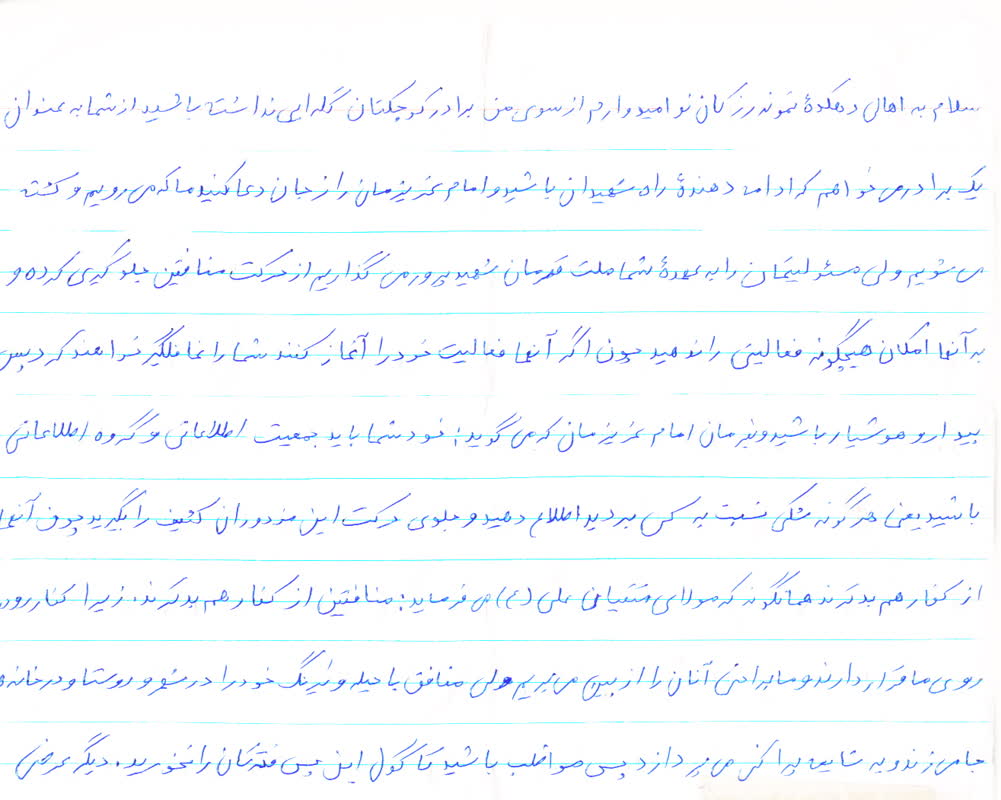 سلام به اهالی دهکدهٔ نمونه رزکان نو امیدوارم از سوی من برادر کوچکتان گله‌ایی نداشته باشید از شما به عنوان
یک برادر می خواهم که ادامه دهندهٔ راه شهیدان باشید و امام عزیزمان را از جان دعا کنید ما که می رویم و کشته
می شویم ولی مسئولیتمان را به عهدهٔ شما ملت قهرمان شهید پرور می گذاریم از حرکت منافقین جلوگیری کرده و
به آنها امکان هیچگونه فعالیتی را ندهید چون اگر آنها فعالیت خود را آغاز کنند شما را غافلگیر خواهند کرد پس
بیدار و هوشیار باشید و بفرمان امام عزیزمان که می گوید: خود شما باید جمعیت اطلاعاتی و گروه اطلاعاتی
باشید یعنی هرگونه شکی نسبت به کسی بردید اطلاع دهید و جلوی حرکت این مزدوران کثیف را بگیرید چون آنها
از کفار هم بدترند همانگونه که مولای متقیان علی (ع) می فرماید: منافقین از کفار هم بدترند. زیرا کفار رودر
روی ما قرار دارند و ما براحتی آنان را از بین می بریم ولی منافق با حیله و نیرنگ خود را در شهر و روستا و در خانه
جا می زند و به شایعه پراکنی می پردازد پس مواظب باشید تا گول این را نخورید. دیگر عرضی